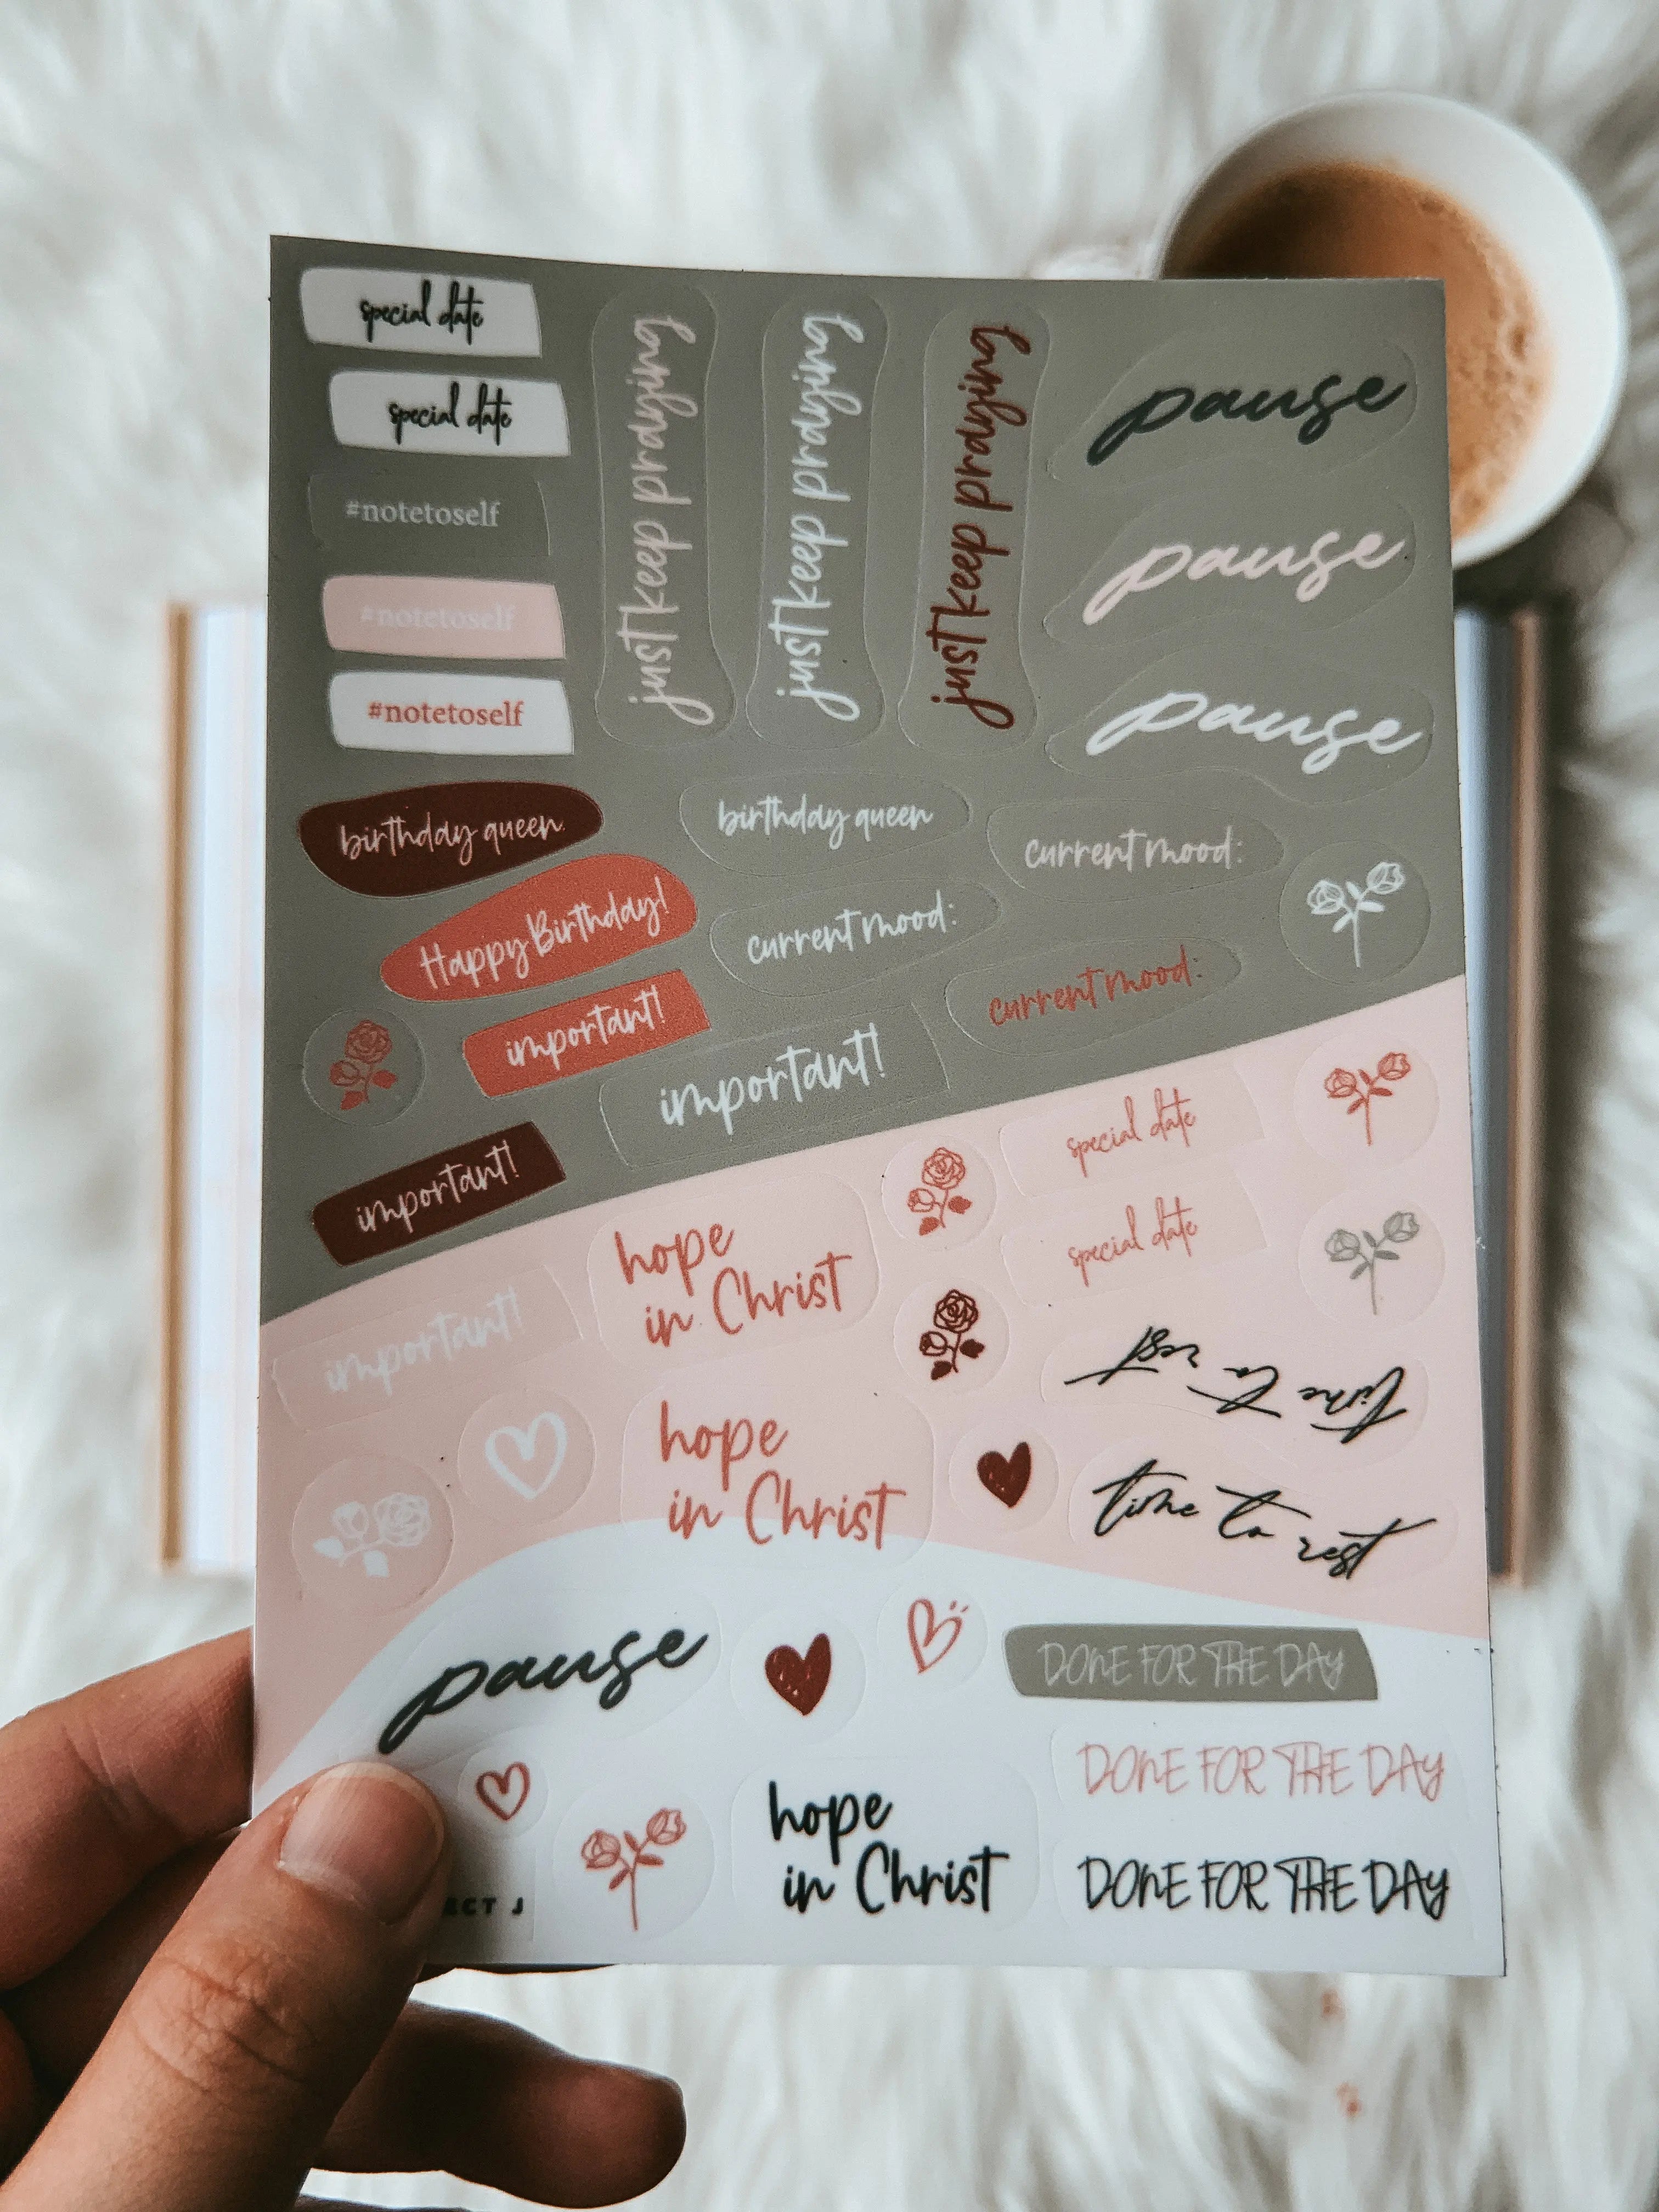 special date
special date
#notetoself
#notetoself
#notetoself
just keep praying
just keep praying
just keep praying
pause
pause
pause
birthday queen
birthday queen
current mood:
Happy Birthday!
current mood:
current mood:
important!
important!
important!
special date
special date
hope
in Christ
important!
time to rest
hope
in Christ
time to rest
pause
DONE FOR THE DAY
DONE FOR THE DAY
hope
in Christ
DONE FOR THE DAY